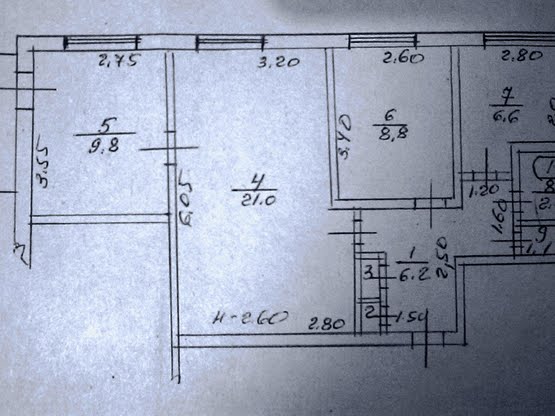 2,75
3,20
2,60
2,80
5
9,8
3.55
4
21.0
6.05
6
8,8
3,40
7
6,6
1.20
1.60
1
8
2.
9
1,1
1
6.2
2,50
3
2
1.50
H-2.60
2.80